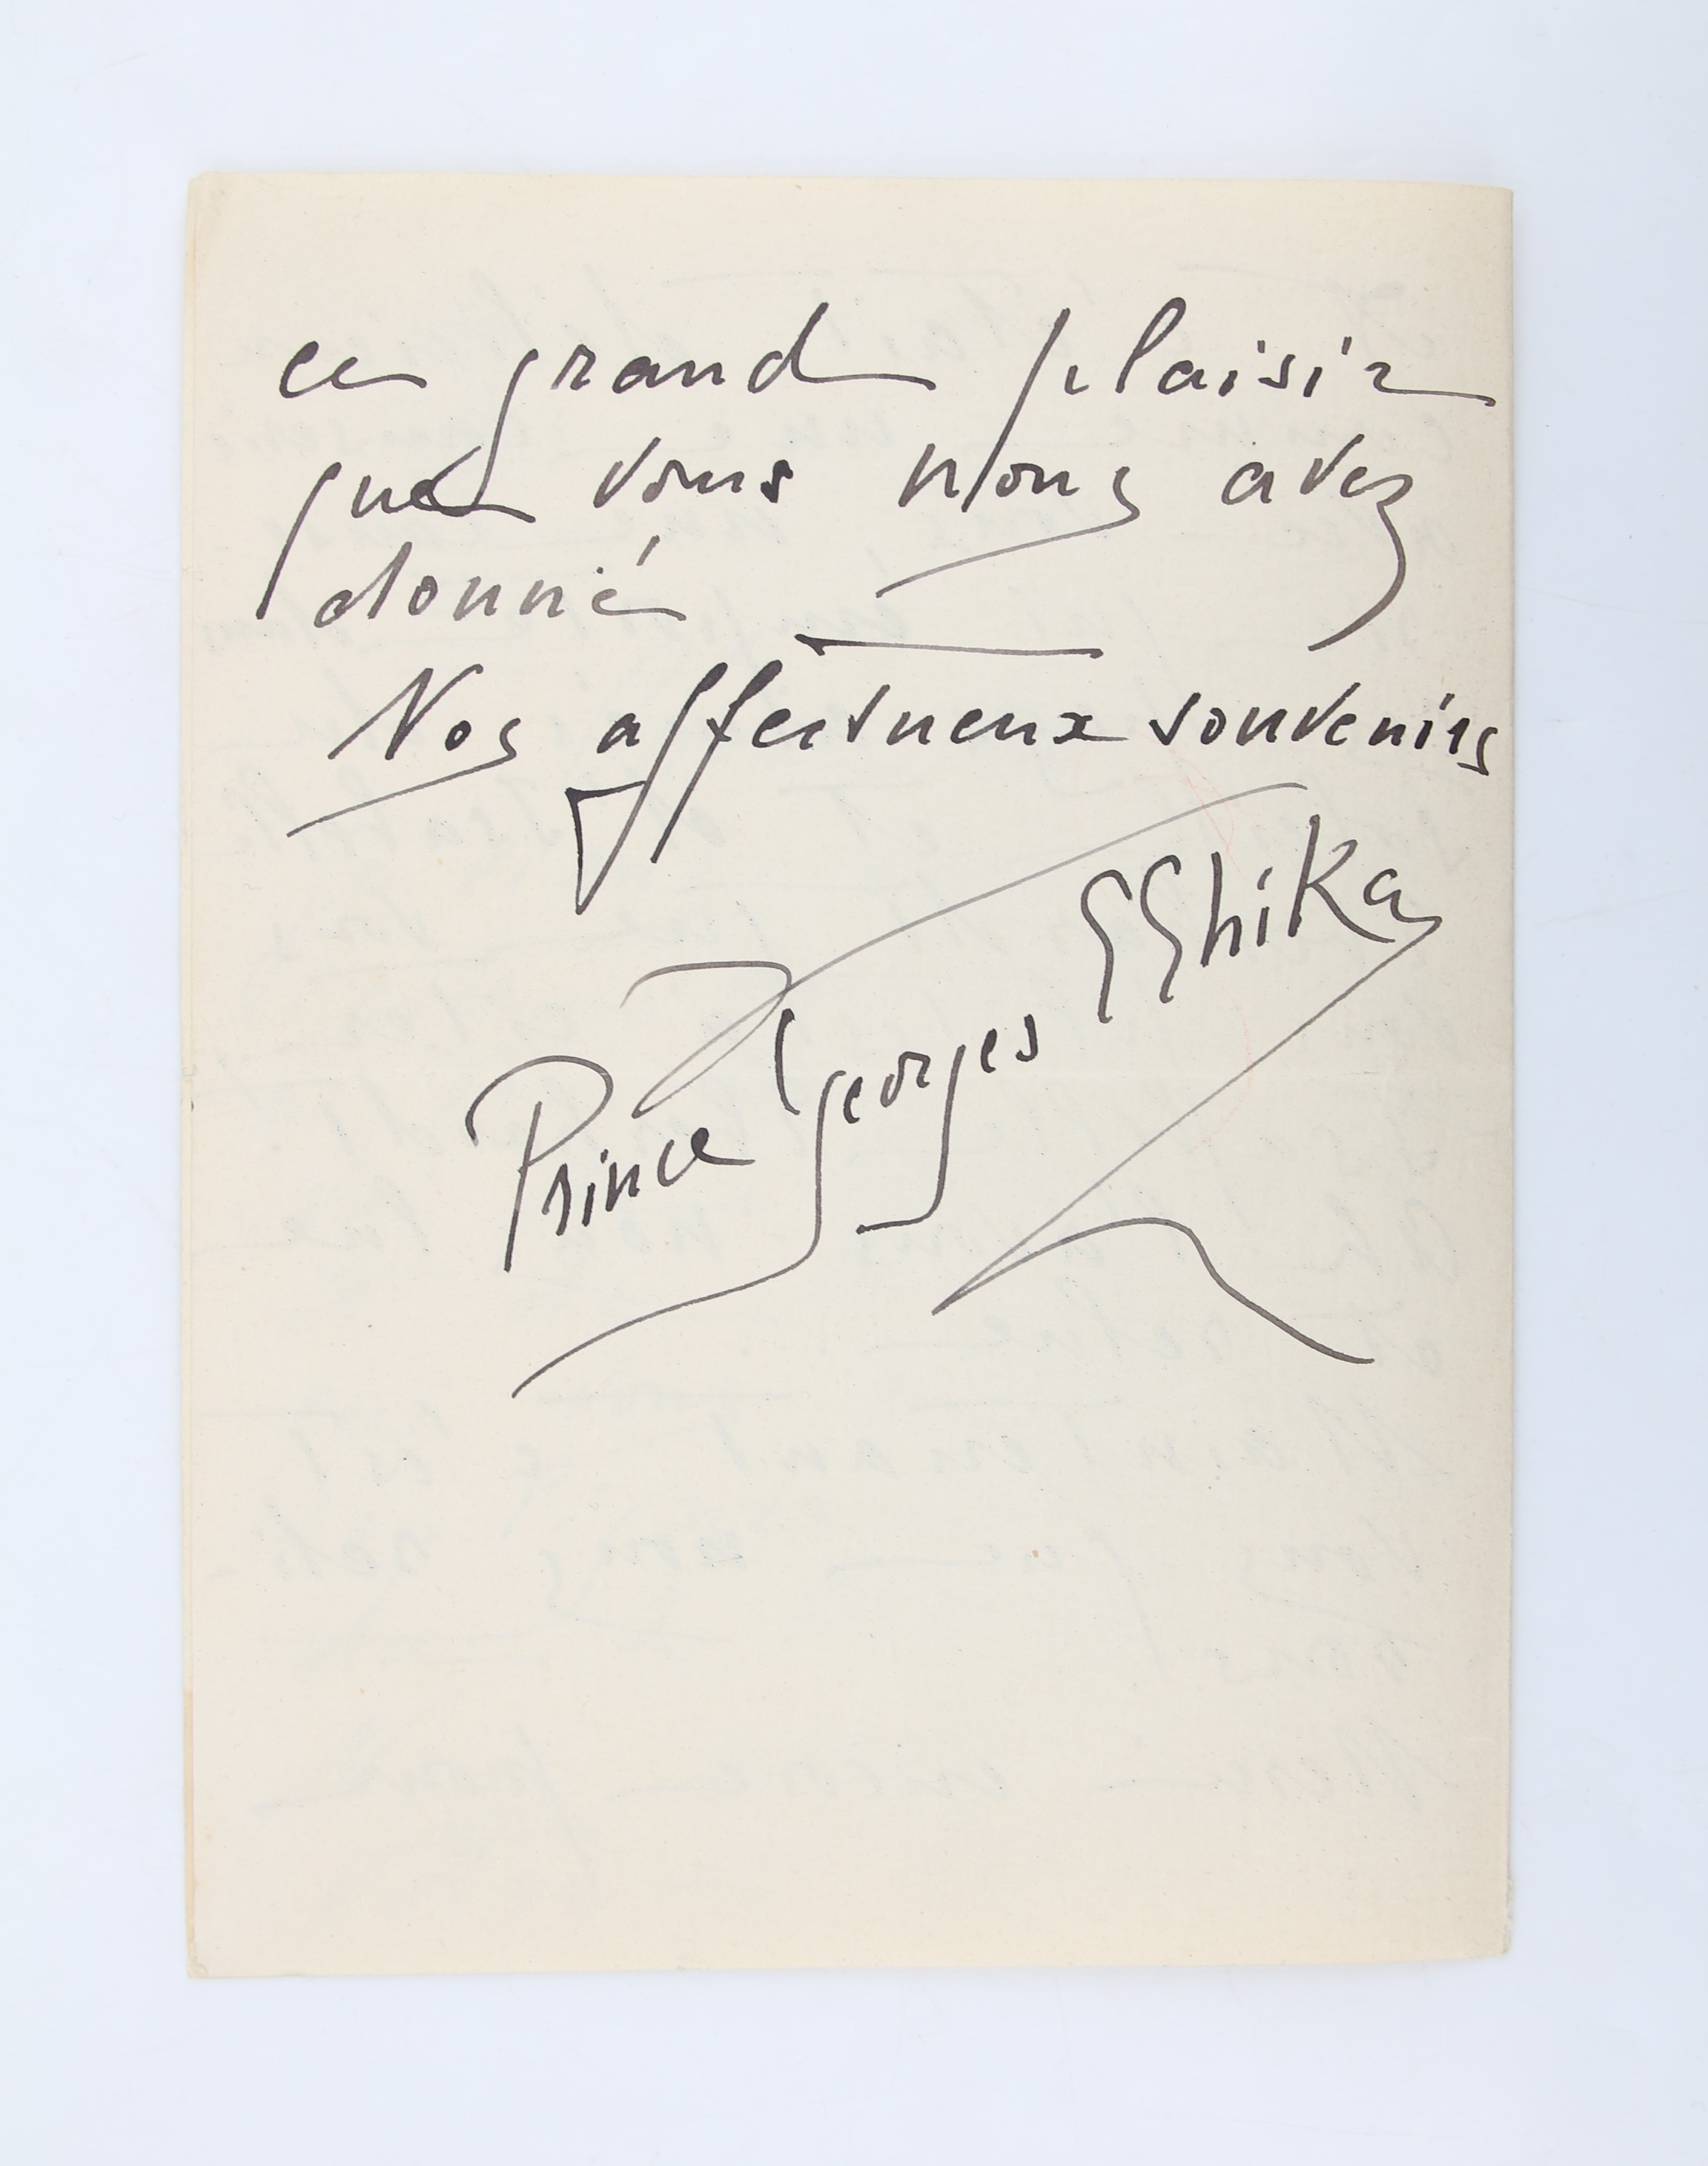 ce grand plaisir
que vous nous avez
donné —
Nos affectueux souvenirs
Prince Georges GGhika